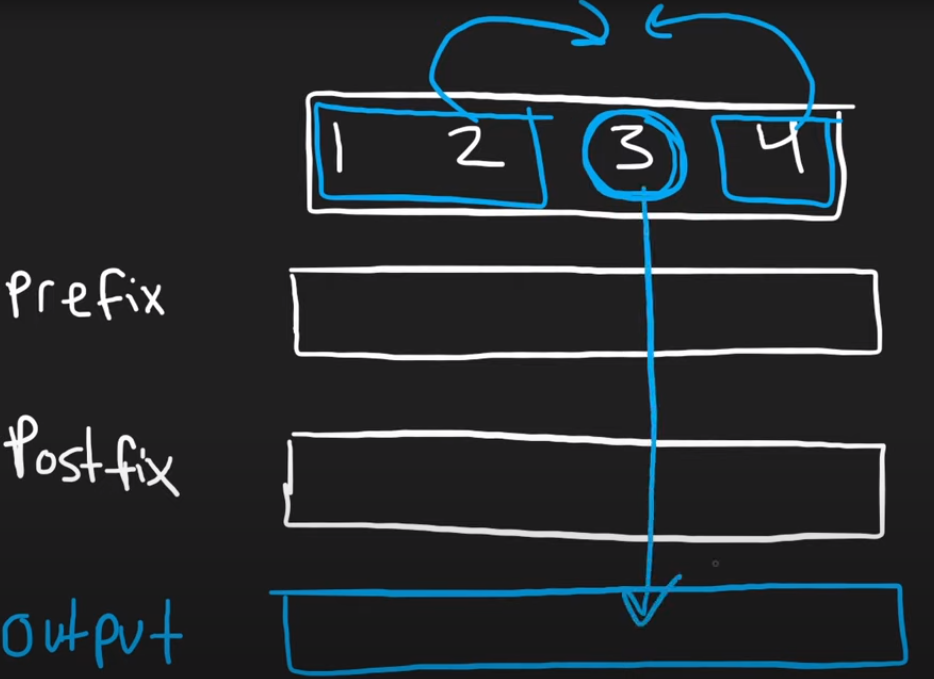 1 2 3 4
Prefix
Postfix
Output